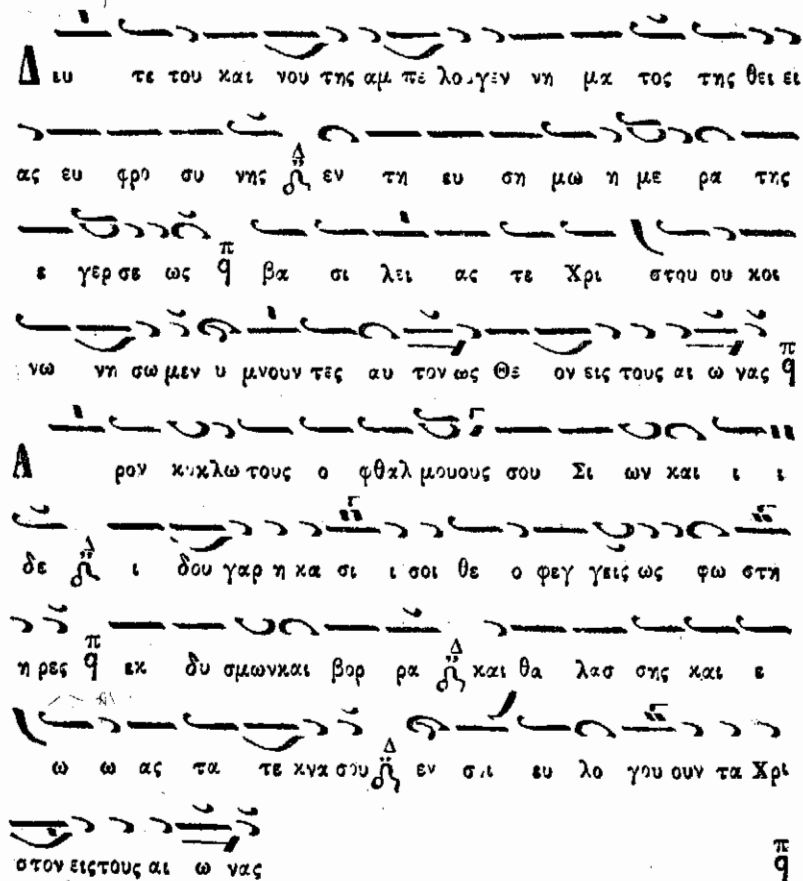 Δ ευ τε του και νου της αμ πε λου γεν νη μα τος της θει ει
ας ευ φρο συ νης Δ εν τη ευ ση μω η με ρα της
ε γερ σε ως π q βα σι λει ας τε Χρι στου ου κοι
νω νη σω μεν υ μνουν τες αυ τον ως Θε ον εις τους αι ω νας π q
Α ρον κυκλω τους ο φθαλ μουους σου Σι ων και ι ι
δε Δ ι δου γαρ η κα σι ι σοι θε ο φεγ γεις ως φω στη
η ρες π q εκ δυ σμων και βορ ρα Δ και θα λασ σης και ε
ω ω ας τα τε κνα σου Δ εν σοι ευ λο γου ουν τα Χρι
στον εις τους αι ω νας π q